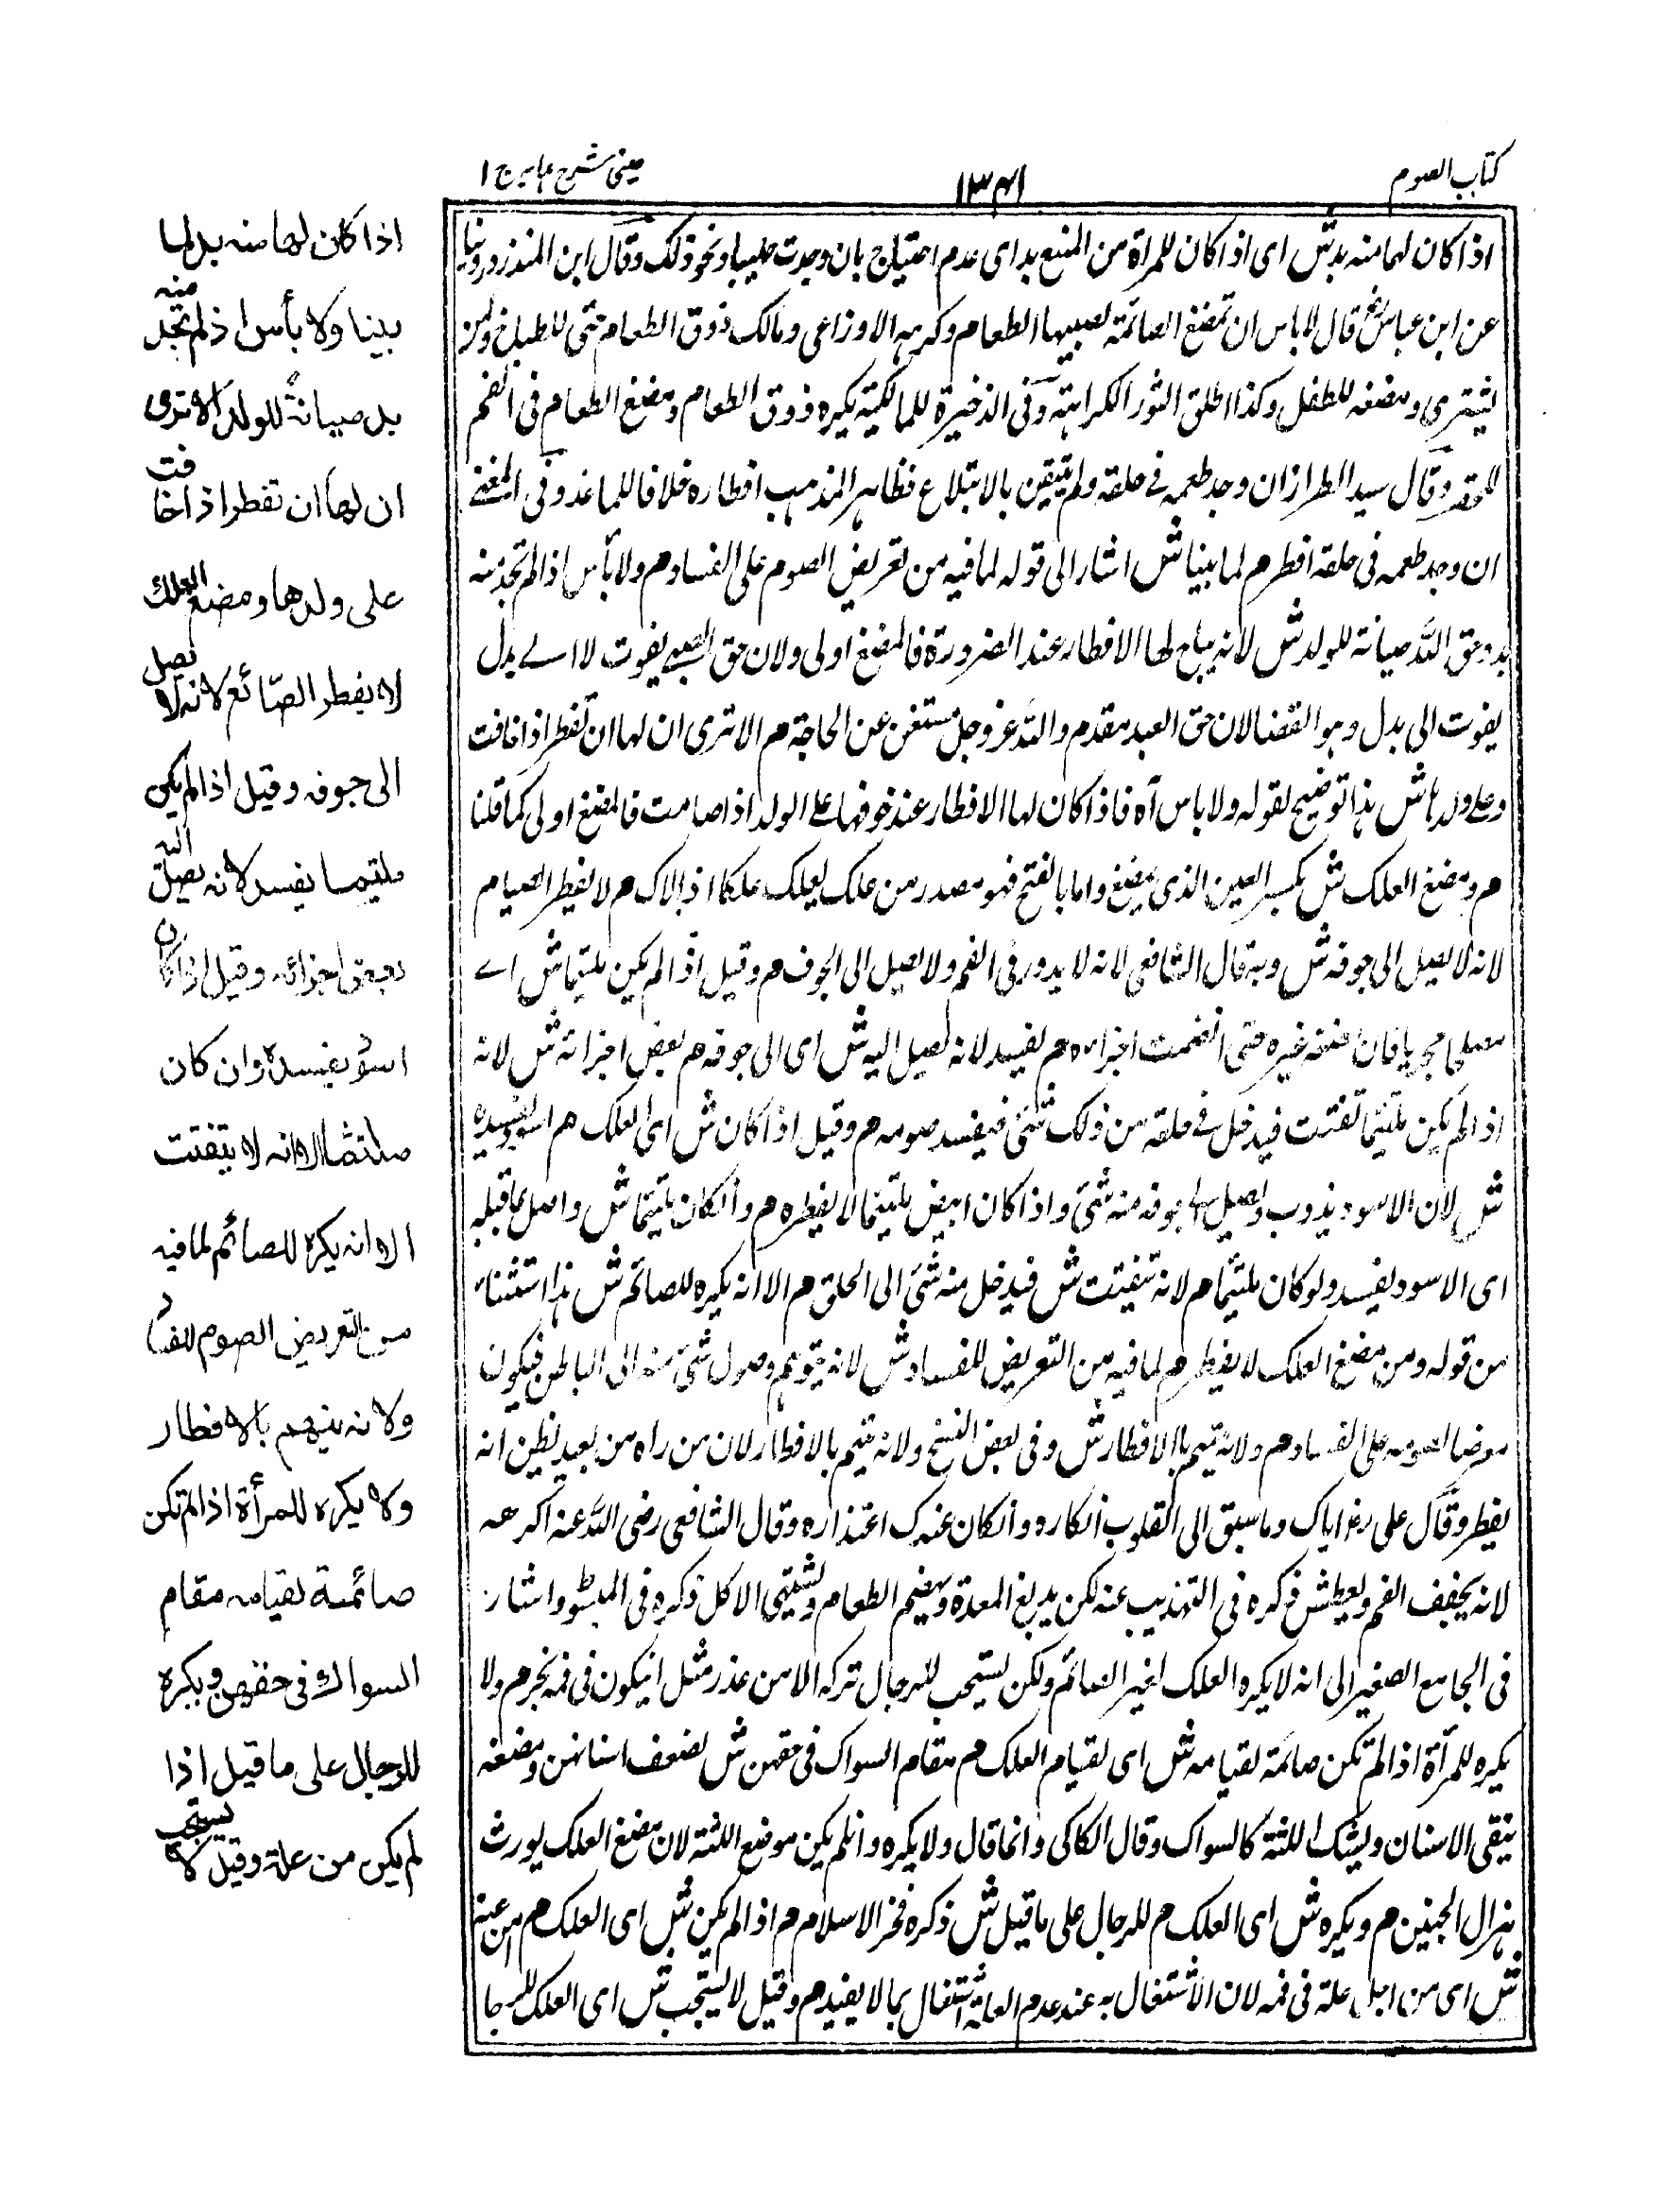 كتاب الصوم
١٣٤١
عينى شرح هدايہ ج ١
اذا كان لها منه بد ش اى اذا كان للمرأة من المضغ بد اى عدم احتياج بان وجدت حليبا ونحو ذلك وقال ابن المنذر وروينا
عن ابن عباس رض قال لا باس ان تمضغ الصائمة لصبيها الطعام وكرهه الاوزاعى ومالك ذوق الطعام حتى للطباخ ولمن
يشترى ومضغه للطفل وكذا اطلق الثورى الكراهة وفى الذخيرة للمالكية يكره ذوق الطعام ومضغ الطعام فى الفم
وقال سيد الطراز ان وجد طعمه فى حلقه ولم يتيقن بالابتلاع فظاهر المذهب افطاره خلافا وفى المغنى
ان وجد طعمه فى حلقه افطر م لما بينا ش اشار الى قوله لما فيه من تعريض الصوم على الفساد م ولا بأس اذا لم تجد منه
بد وحق الله صيانة للولد ش لانه يباح لها الافطار عند الضرورة فالمضغ اولى ولان حق الصبى يفوت لا الى بدل
يفوت الى بدل وهو القضا لان حق العبد مقدم والله عز وجل مستغن عن الحاجة م الا ترى ان لها ان تفطر اذا خافت
على ولدها ش هذا توضيح لقوله ولا باس آه فاذا كان لها الافطار عند خوفها على الولد اذا صامت فالمضغ اولى كما قلنا
م ومضغ العلك ش بكسر العين الذى يمضغ واما بالفتح فهو مصدر من علك يعلك علكا اذا لاك م لا يفطر الصيام
لانه لا يصل الى جوفه ش وبه قال الشافعى لانه لا يدور فى الفم ولا يصل الى الجوف م وقيل اذا لم يكن ملتيما ش اى
فان مضغه غيره حتى انضمت اجزاءه م يفسد لانه يصل اليه ش اى الى جوفه م بعض اجزائه ش لانه
اذا لم يكن ملتيما تفتت فيدخل فى حلقه من ذلك شئ فيفسد صومه م وقيل اذا كان ش اى العلك م اسود يفسده
ش لان الاسود يذوب ويصل الى جوفه منه شئ واذا كان ابيض ملتيما لا يفطره م وان كان ملتيما ش واصل بما قبله
اى الاسود يفسد ولو كان ملتيما م لانه تتفتت ش فيدخل منه شئ الى الحلق م الا انه يكره للصائم ش هذا استثناء
من قوله ومن مضغ العلك لا يفطر م لما فيه من التعريض للفساد ش لانه يتوهم وصول شئ منه الى الباطن فيكون
معرضا لصومه على الفساد م ولانه يتهم بالافطار ش وفى بعض النسخ ولانه متهم بالافطار لان من راه من بعيد يظن انه
يفطر وقال على رض اياك وما سبق الى القلوب انكاره وان كان عندك اعتذاره وقال الشافعى رضى الله عنه اكرهه
لانه يجفف الفم ويعطش ذكره فى التهذيب عنه لكن يدبغ المعدة ويهضم الطعام ويشتهى الاكل ذكره فى المبسوط واشار
فى الجامع الصغير الى انه لا يكره العلك لغير الصائم ولكن يستحب للرجال تركه الا من عذر مثل ان يكون فى فمه بخر م ولا
يكره للمرأة اذا لم تكن صائمة لقيامه ش اى لقيام العلك م مقام السواك فى حقهن ش لضعف اسنانهن ومضغه
ينقى الاسنان ويشد اللثة كالسواك وقال الكاكى وانما قال ولا يكره وان لم يكن موضع اللثة لان مضغ العلك يورث
هزال الجنبين م ويكره ش اى العلك م للرجال على ما قيل ش ذكره فخر الاسلام م اذا لم يكن ش اى العلك م من علة
ش اى من اجل علة فى فمه لان الاشتغال به عند عدم العلة اشتغال بما لا يفيد م وقيل لا يستحب ش اى العلك للرجا
اذا كان لها منه بد لما
بينا ولا بأس اذا لم تجد منه
بد صيانة للولد الا ترى
ان لها ان تفطر اذا خافت
على ولدها ومضغ العلك
لا يفطر الصّائم لانه لا يصل
الى جوفه وقيل اذا لم يكن
ملتيما يفسد لانه يصل اليه
بعض اجزائه وقيل اذا كان
اسود يفسده وان كان
ملتئما لانه لا يتفتت
الا انه يكره للصائم لما فيه
من التعريض الصوم للفساد
ولانه يتهم بالافطار
ولا يكره للمرأة اذا لم تكن
صائمة لقيامه مقام
السواك فى حقهن ويكره
للرجال على ما قيل اذا
لم يكن من علة وقيل لا يستحب